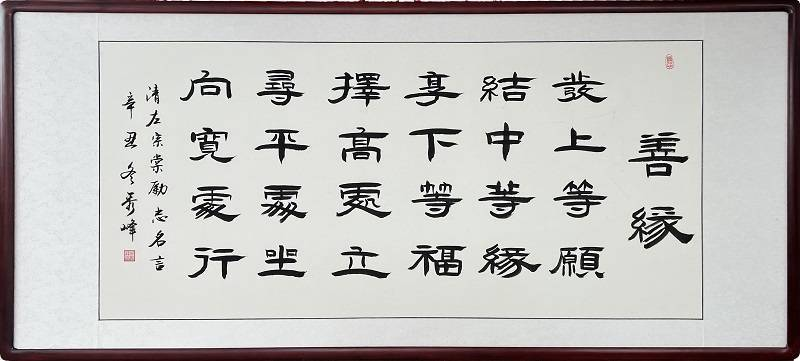 善緣
發上等願
結中等緣
享下等福
擇高處立
尋平處坐
向寬處行
清左宗棠勵志名言
辛丑冬秀峰